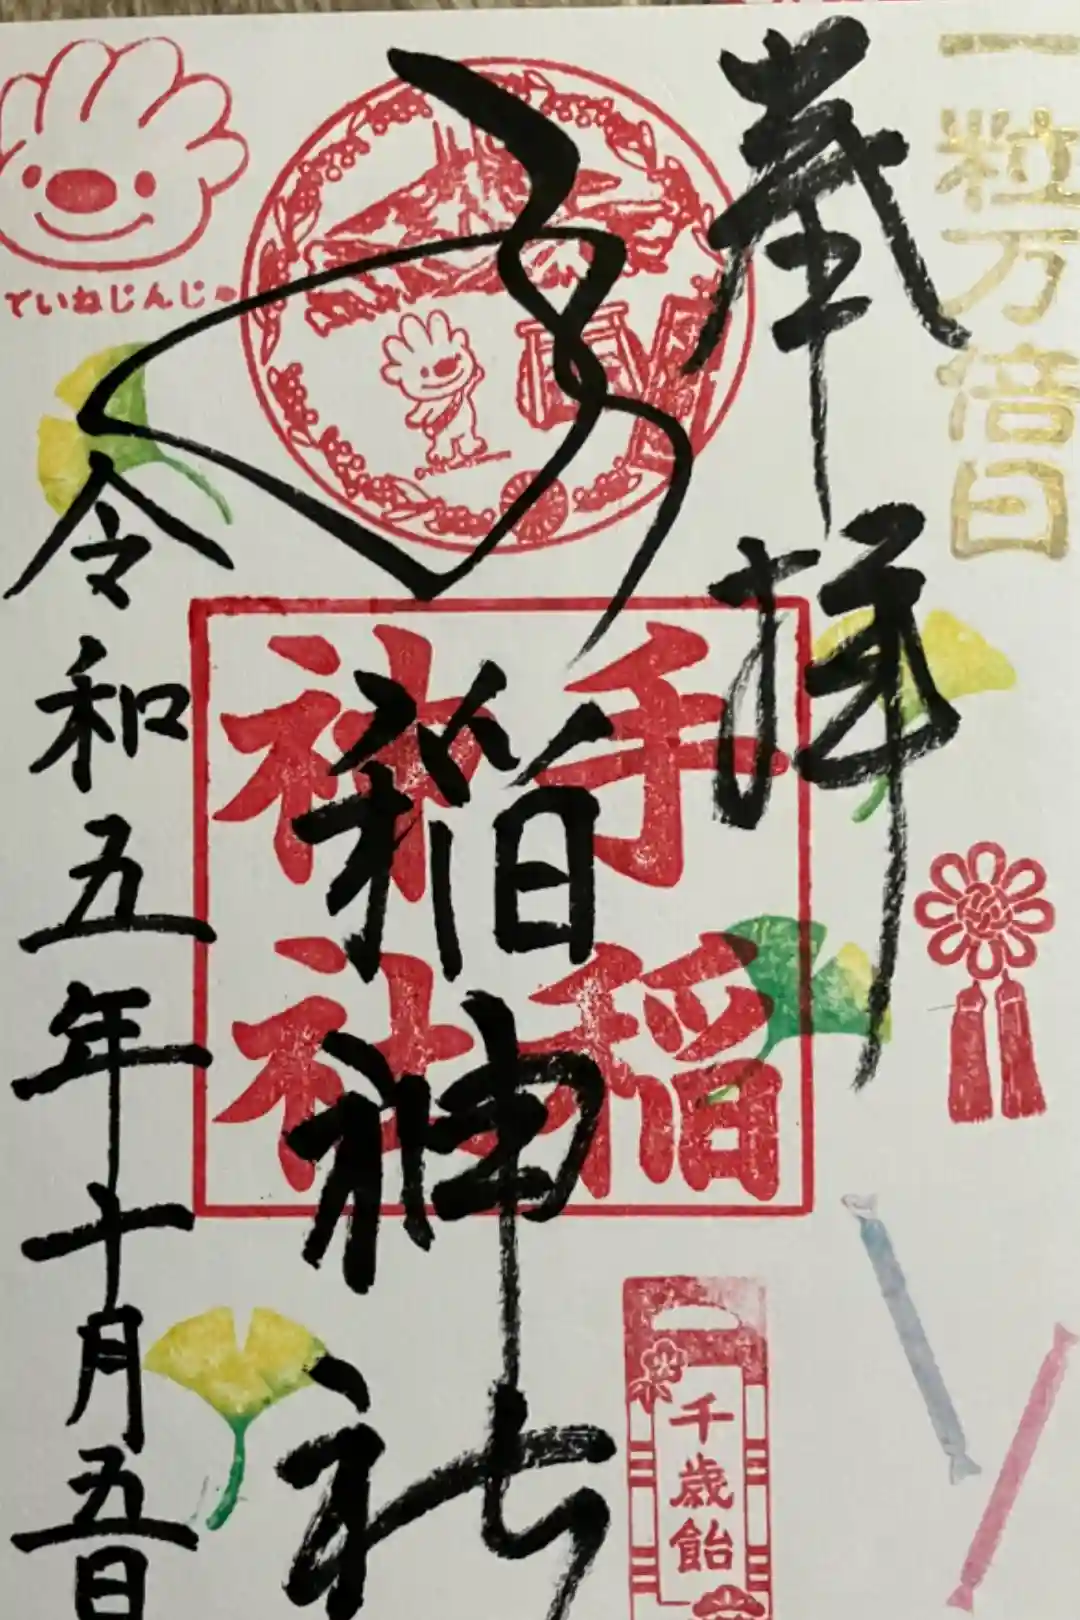 一粒万倍日
奉拝
手稲神社
手稲
神社
令和五年十月五日
ていねじんじゃ
千歳飴